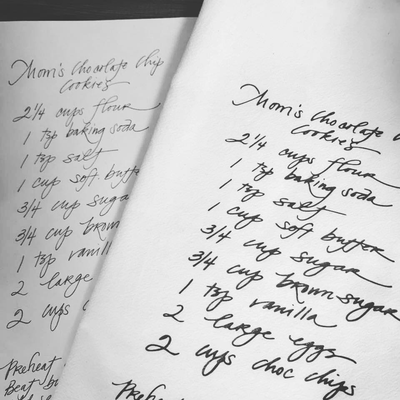 Mom's Chocolate Chip
Cookies
2 1/4 cups flour
1 tsp baking soda
1 tsp salt
1 cup soft butter
3/4 cup sugar
3/4 cup brown
1 tsp vanilla
2 large
2 cups
Preheat
Beat
Mom's Chocolate
Cookies
2 1/4 cups flour
1 tsp baking soda
1 tsp salt
1 cup soft butter
3/4 cup sugar
3/4 cup brown sugar
1 tsp vanilla
2 large eggs
2 cups choc chips
Preheat